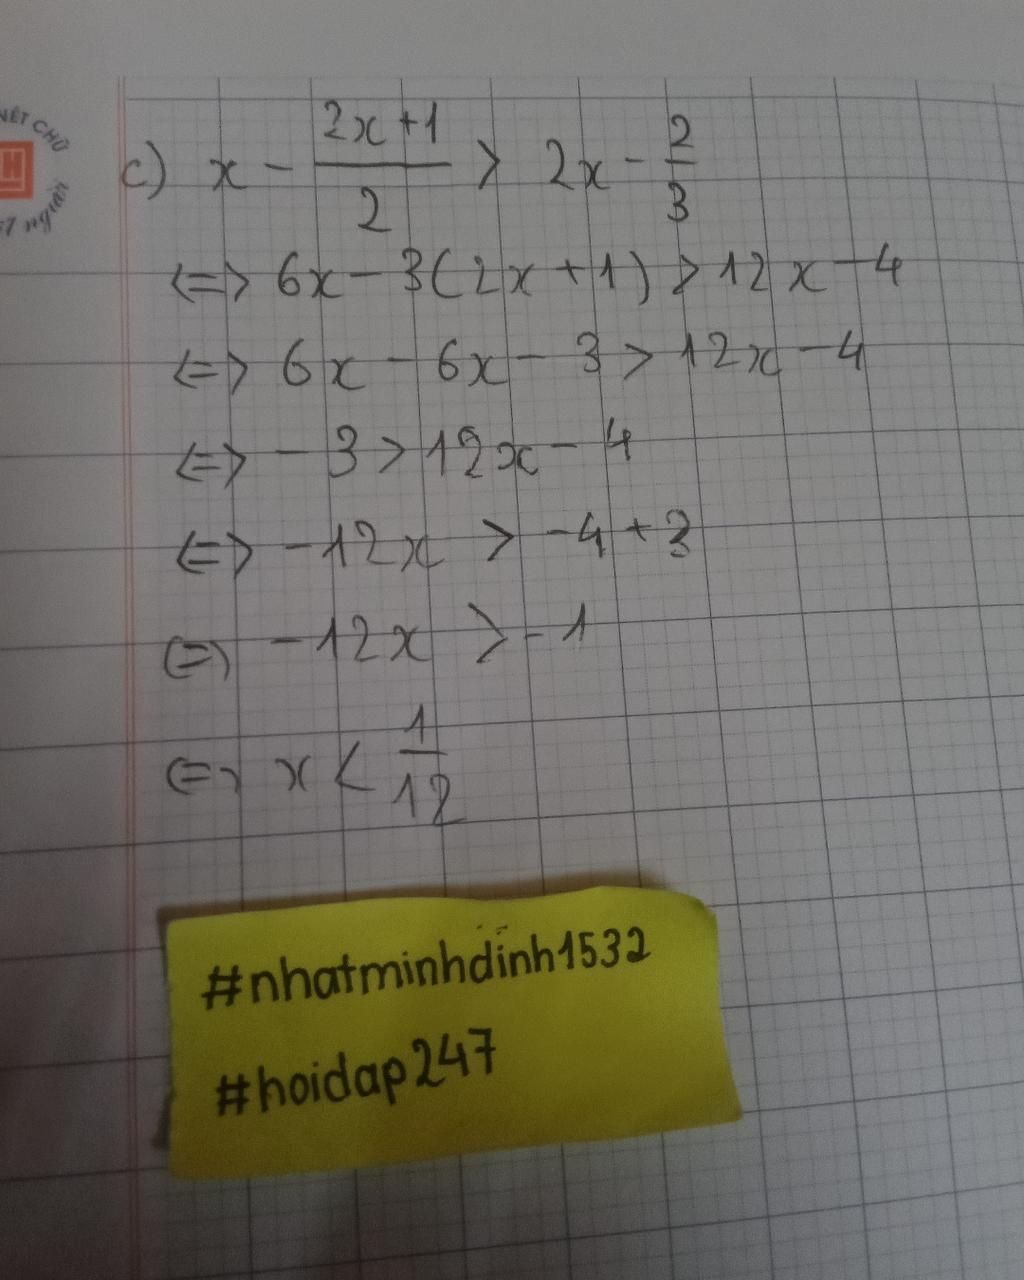 NÉT CHỮ
H
người
c) x - \frac{2x+1}{2} > 2x - \frac{2}{3}
<=> 6x - 3(2x + 1) > 12x - 4
<=> 6x - 6x - 3 > 12x - 4
<=> - 3 > 12x - 4
<=> - 12x > - 4 + 3
<=> - 12x > - 1
<=> x < \frac{1}{12}
#nhatminhdinh1532
#hoidap247